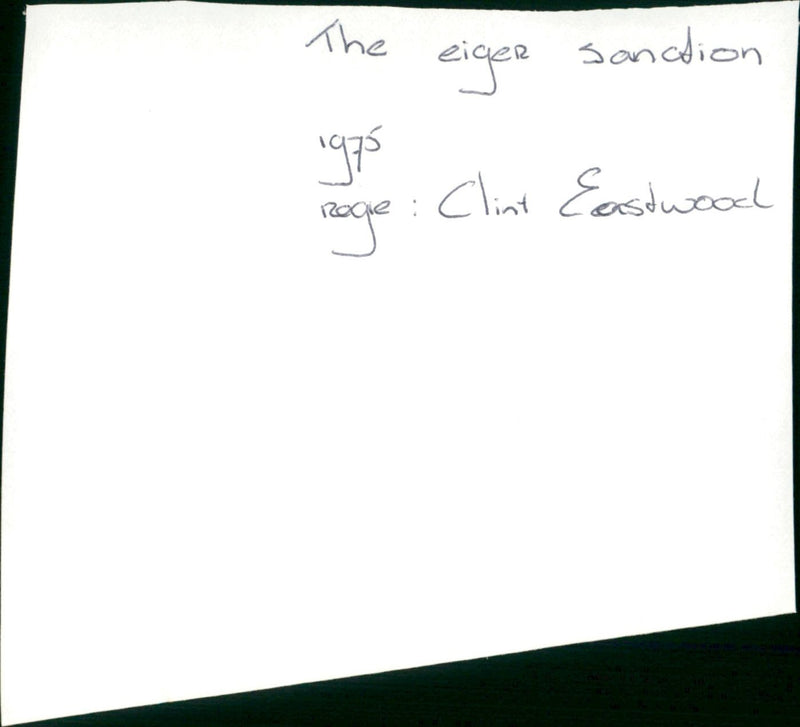 The eiger sanction
1975
regie : Clint Eastwood